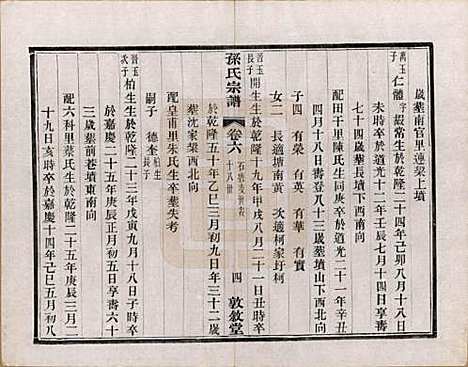 歲葬南官里連梁上墳
萬玉子 仁體 字嘏常生於乾隆二十四年己卯八月十八
未時卒於道光十二年壬辰七月十四日享壽
七十四歲葬墳大塘下西南向
配田干里陳氏生同庚卒於道光二十一年辛丑
四月十八日壽登八十三歲葬墳山下西北向
子四 有榮 有英 有華 有實
女二 長適塘南黃 次適柯家圩柯
晉玉長子 開生 生於乾隆十九年甲戌八月二十一日丑時卒
孫氏宗譜 卷六 十八世 四 敦敘堂
於乾隆五十年乙巳三月初九日年三十二歲
葬沈家墳西北向
配皇甫里朱氏生卒葬失考
嗣子 德奎 柏生長子
晉玉次子 柏生 生於乾隆二十三年戊寅九月十八日子時卒
於嘉慶二十五年庚辰正月初五日享壽六十
三歲葬前巷墳東南向
配六科里葉氏生於乾隆二十五年庚辰三月二
十九日亥時卒於嘉慶十四年己巳五月初